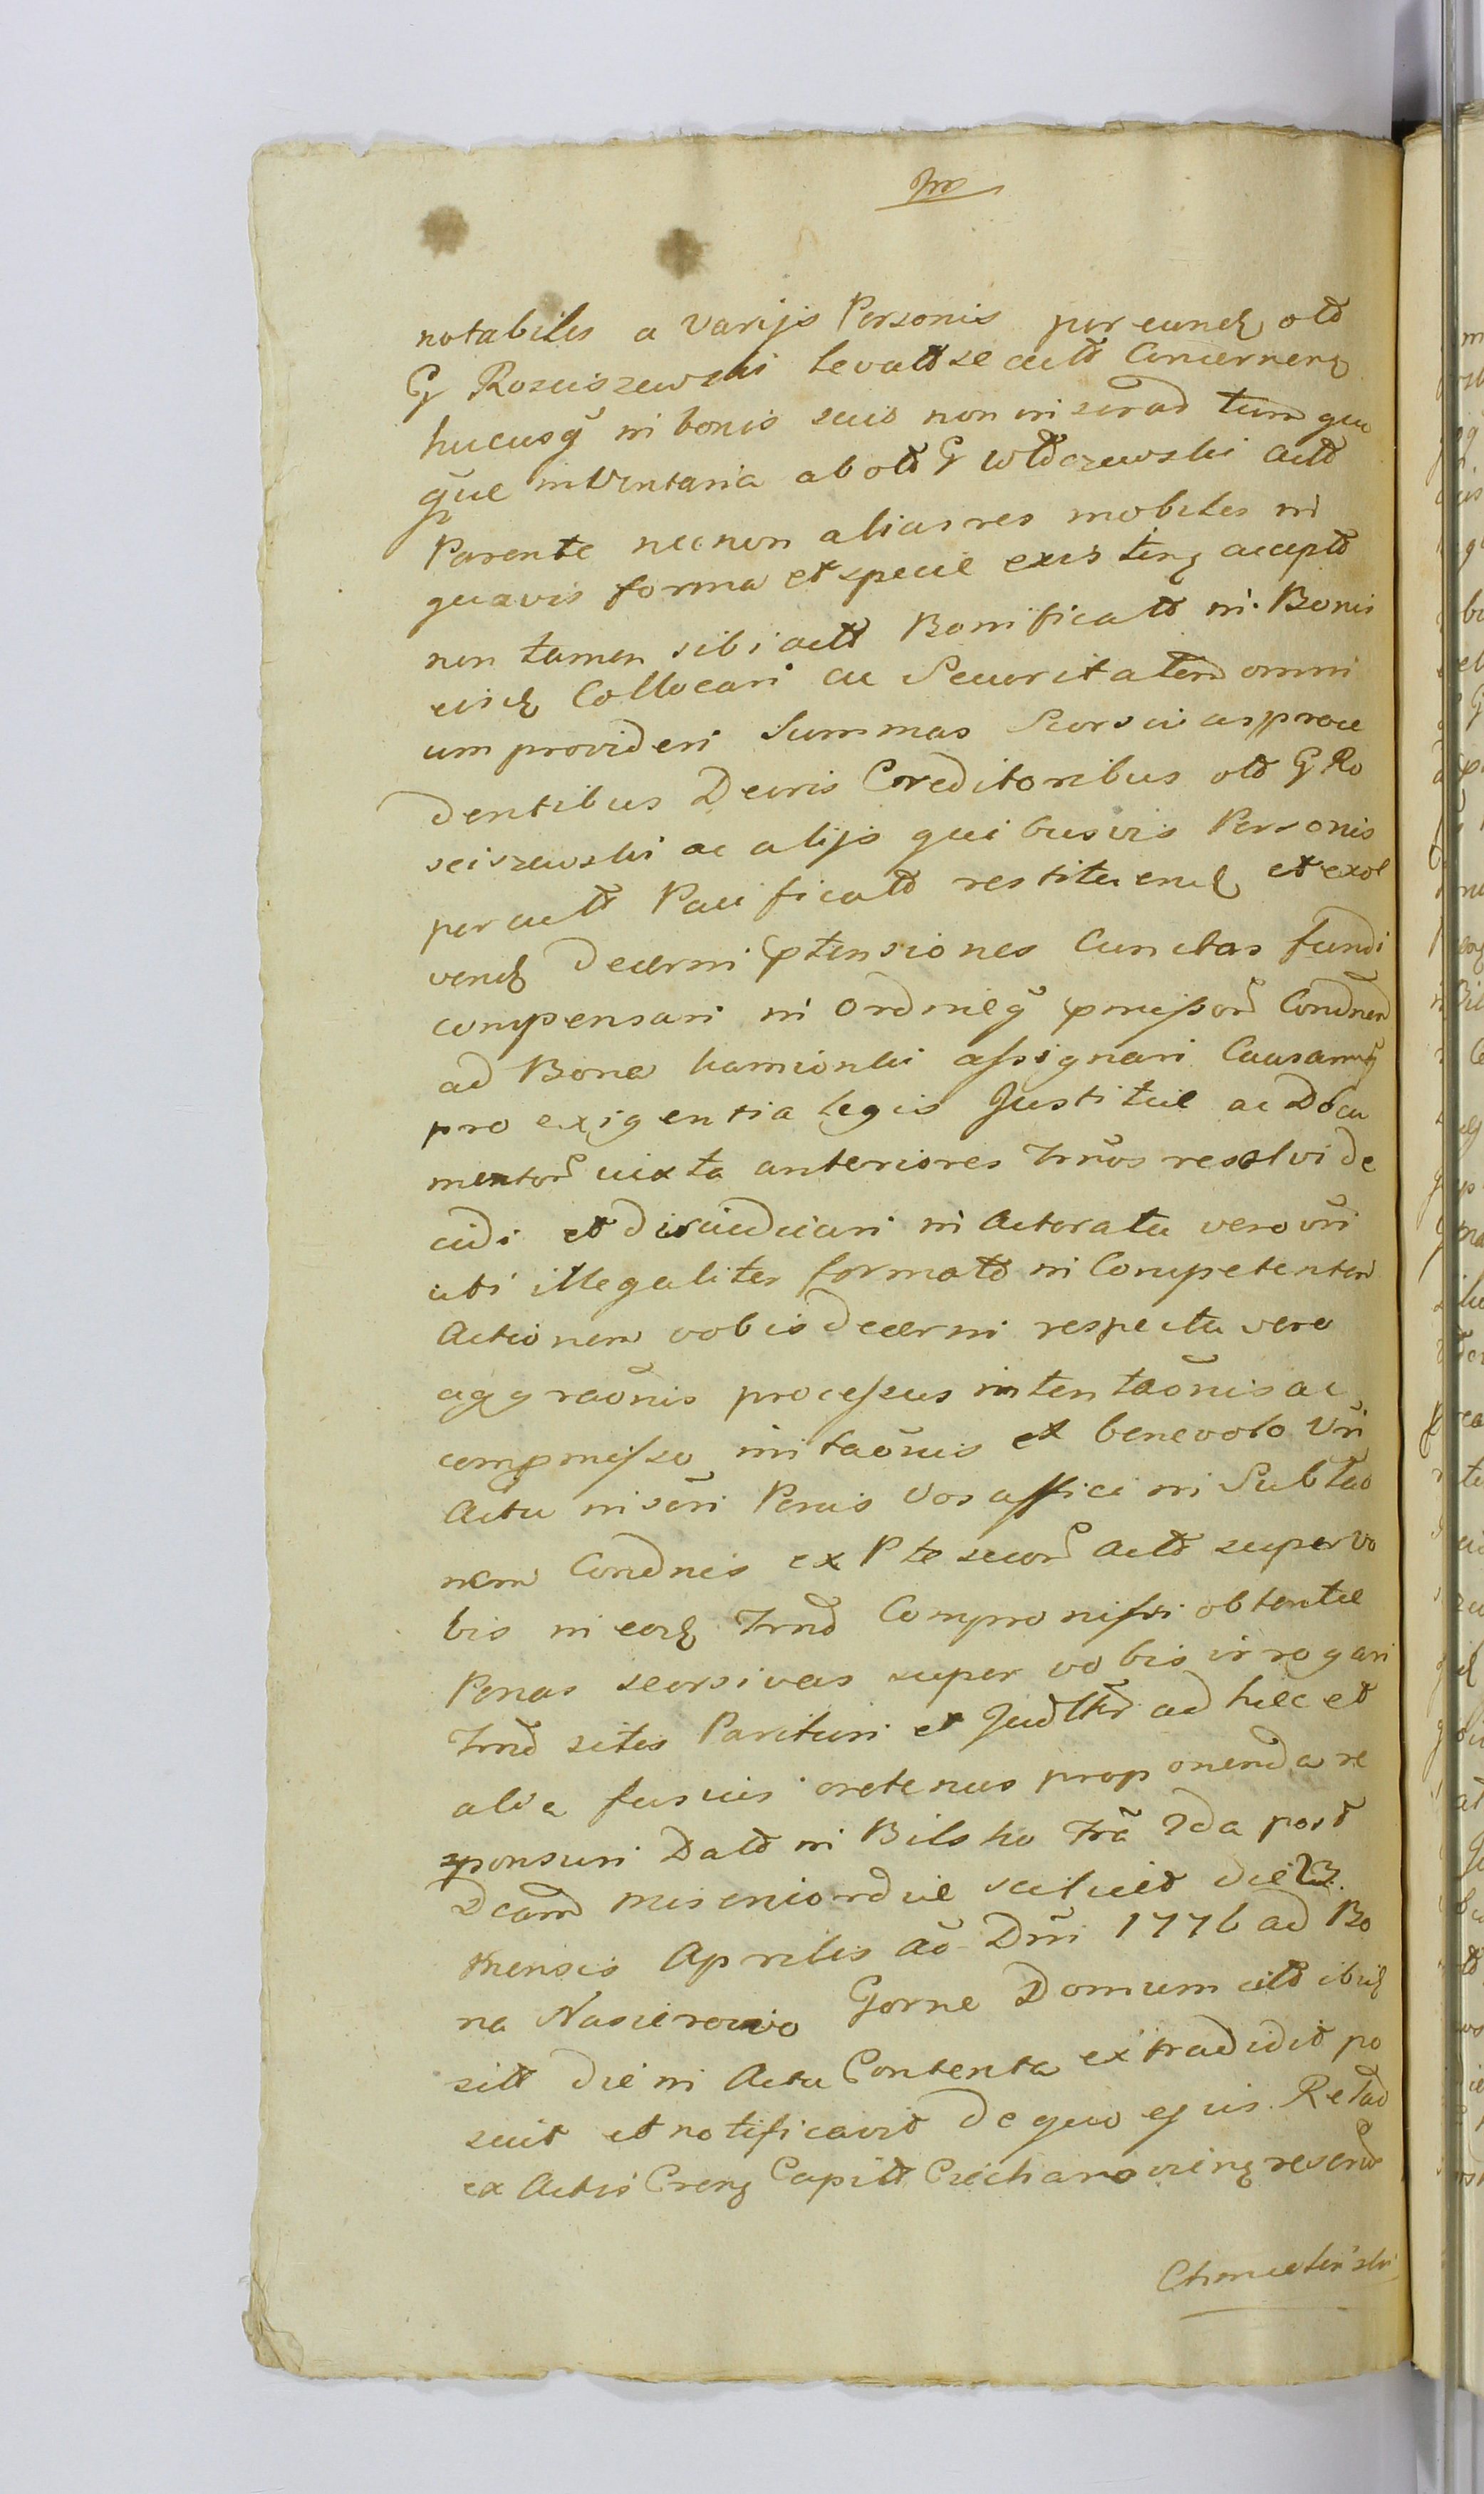 notabiles a Varijs Personis per eund olt̃
G Rosciszewski levatt se actt̃ Concernenꝫ
hucusq̃ in bonis suis non inserad tum qua
que inventaria ab olt̃ G Wlt̃czewski actt̃
Parente nec non alias res mobiles in
quavis forma et specie existenꝫ accept̃
non tamen sibi actt̃ Bonificatt̃ in Bonis
eisd Collocari ac Securitatem omni
um provideri Summas Seorsivas proce
dentibus Decris Creditoribus olt̃ G Ro
sciszewski ac alijs quibusvis Personis
per actt̃ Pacificatt̃ restituend et exol
vend decerni ptensiones Cunctas fundi
compensari in Ordineq̃ pmissor̃ Condnem̃
ad Bona kamionki assignari Causamq̃
pro exigentia legis Justitiæ ac Docu
mentor̃ iuxta anteriores Trños resolvi de
cidi et disiudicari in Actoratu vero vr̃i
uti illegaliter formatt̃ in Competentem
Actionem vobis decerni respectu vero
aggraõnis processus intentaõnis ac
compmisso imitaõnis ex benevolo Vr̃i
Actu in seri Penis Vos affici in Sublao
nem Condnis ex Pte suor̃ actt̃ super vo
bis in eod Trnõ Compromissi obtentæ
Penas seorsivas super vobis irrogari
Trnõ sitis Parituri et Judltr̃ ad hæc et
alia fusius oretenus proponenda re
sponsuri Datt̃ in Bilsko fra 2da post
Dcam Misericordiæ scilicet die 23
Mensis Aprilis Ao Dñi 1776 ad Bo
na Nasierowo Gorne Domum citt̃ ibid
sitt̃ die in Actu Contenta extradidit po
suit et notificavit de quo ejus Relao
ex Actis Crenꝫ Capitt Ciechanovienꝫ rescrib̃